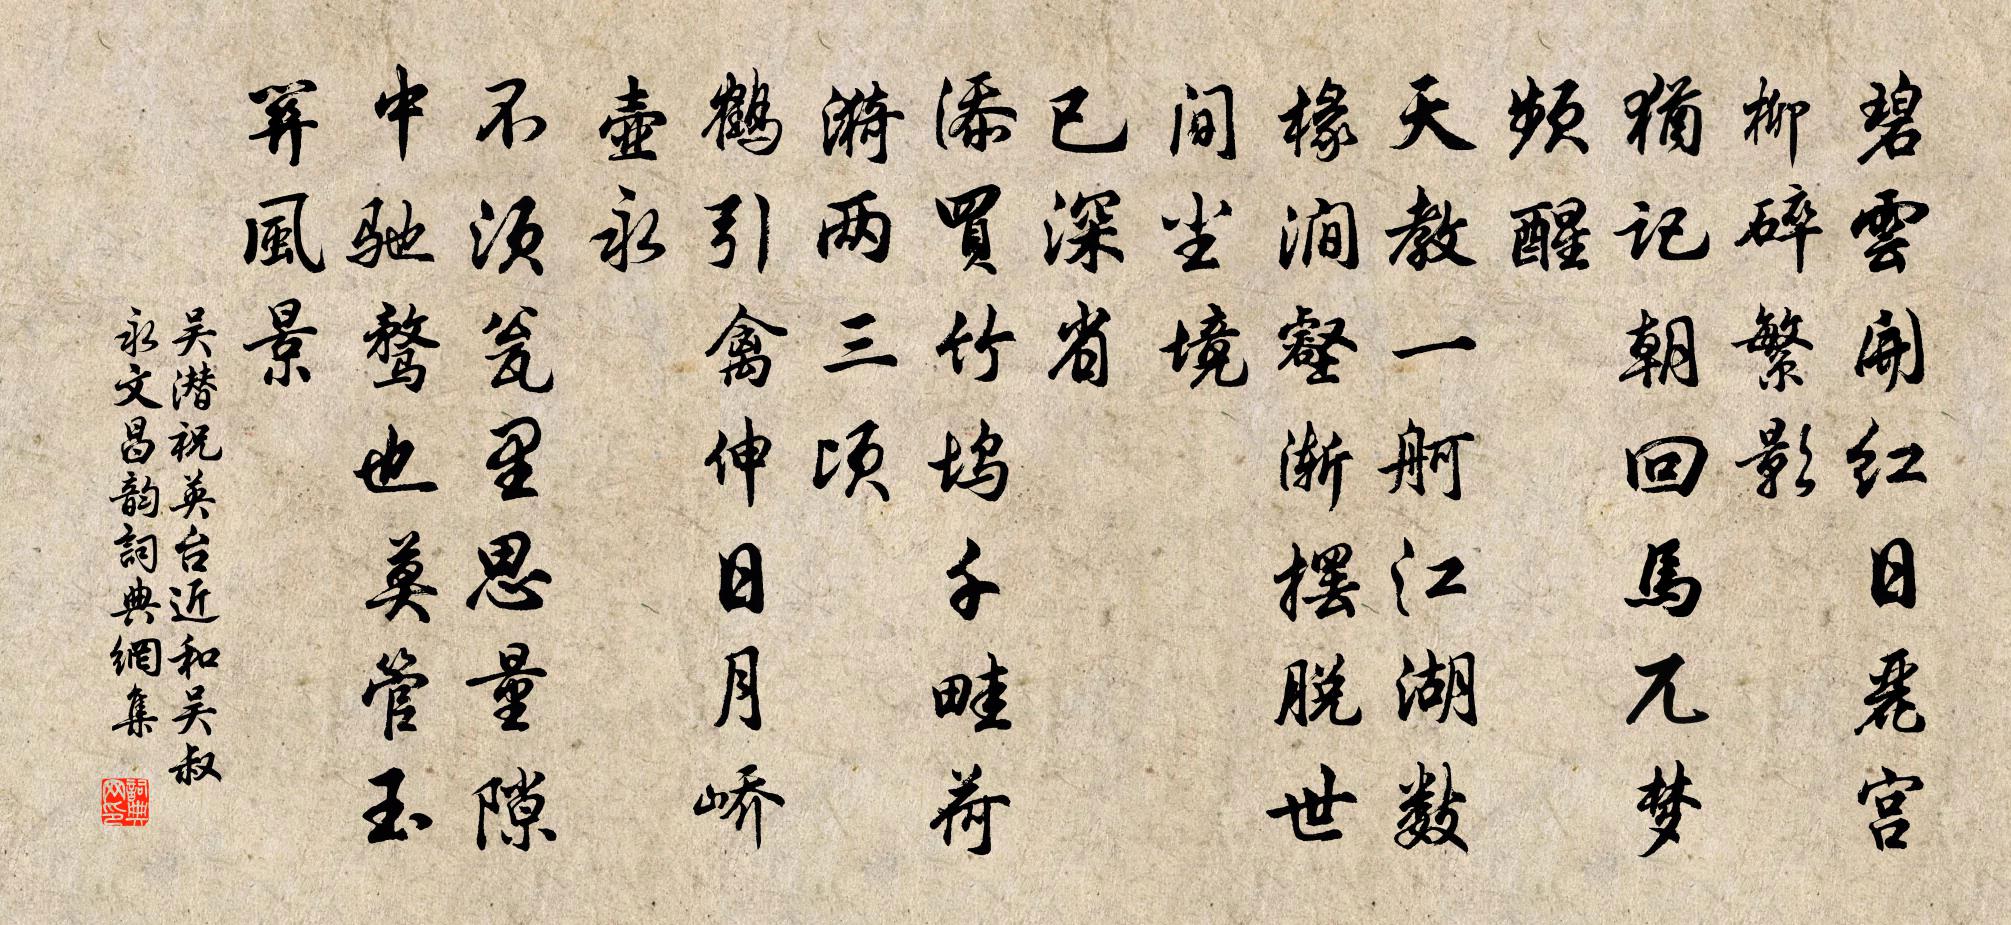 碧雲開红日麗宫
柳碎繁影
猶记朝回馬兀梦
频醒
天教一舸江湖数
椽澗壑渐摆脱世
间尘境
已深省
添買竹坞千畦荷
漪两三顷
鶴引禽伸日月峤
壶永
不须瓮里思量隙
中驰骛也莫管玉
笄風景
吴潜祝英台近和吴叔
永文昌韵詞典網集
詞典网印